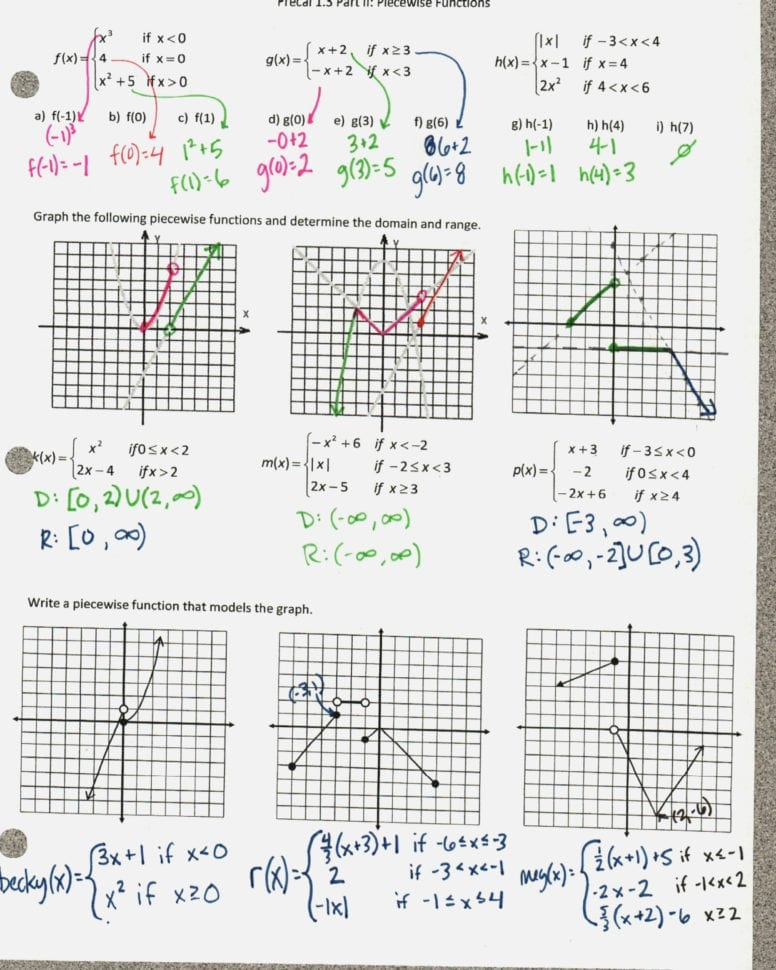 Precal 1.3 Part II: Piecewise Functions
f(x)= { x³ if x<0
4 if x=0
x²+5 if x>0
g(x)= { x+2, if x≥3
-x+2 if x<3
h(x)= { |x| if -3<x<4
x-1 if x=4
2x² if 4<x<6
a) f(-1) b) f(0) c) f(1) d) g(0) e) g(3) f) g(6) g) h(-1) h) h(4) i) h(7)
(-1)³
f(-1)=-1
f(0)=4
1²+5
f(1)=6
-0+2
g(0)=2
3+2
g(3)=5
6+2
g(6)=8
|-1|
h(-1)=1
4-1
h(4)=3
∅
Graph the following piecewise functions and determine the domain and range.
Y
X
Y
X
k(x)= { x² if 0≤x<2
2x-4 if x>2
D: [0,2)U(2,∞)
R: [0,∞)
m(x)= { -x²+6 if x<-2
|x| if -2≤x<3
2x-5 if x≥3
D: (-∞,∞)
R: (-∞,∞)
p(x)= { x+3 if -3≤x<0
-2 if 0≤x<4
-2x+6 if x≥4
D: [-3,∞)
R: (-∞,-2]U[0,3)
Write a piecewise function that models the graph.
(-3,1)
(2,-6)
becky(x)= { 3x+1 if x<0
x² if x≥0
r(x)= { 4/3(x+3)+1 if -6≤x≤-3
2 if -3<x<-1
-|x| if -1≤x≤4
meg(x)= { 1/2(x+1)+5 if x≤-1
-2x-2 if -1<x<2
5/3(x+2)-6 x≥2